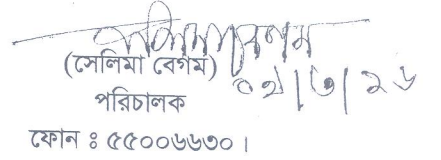 (সেলিমা বেগম)
০২|৩|২৬
পরিচালক
ফোন ঃ ৫৫০০৬৬৩০।